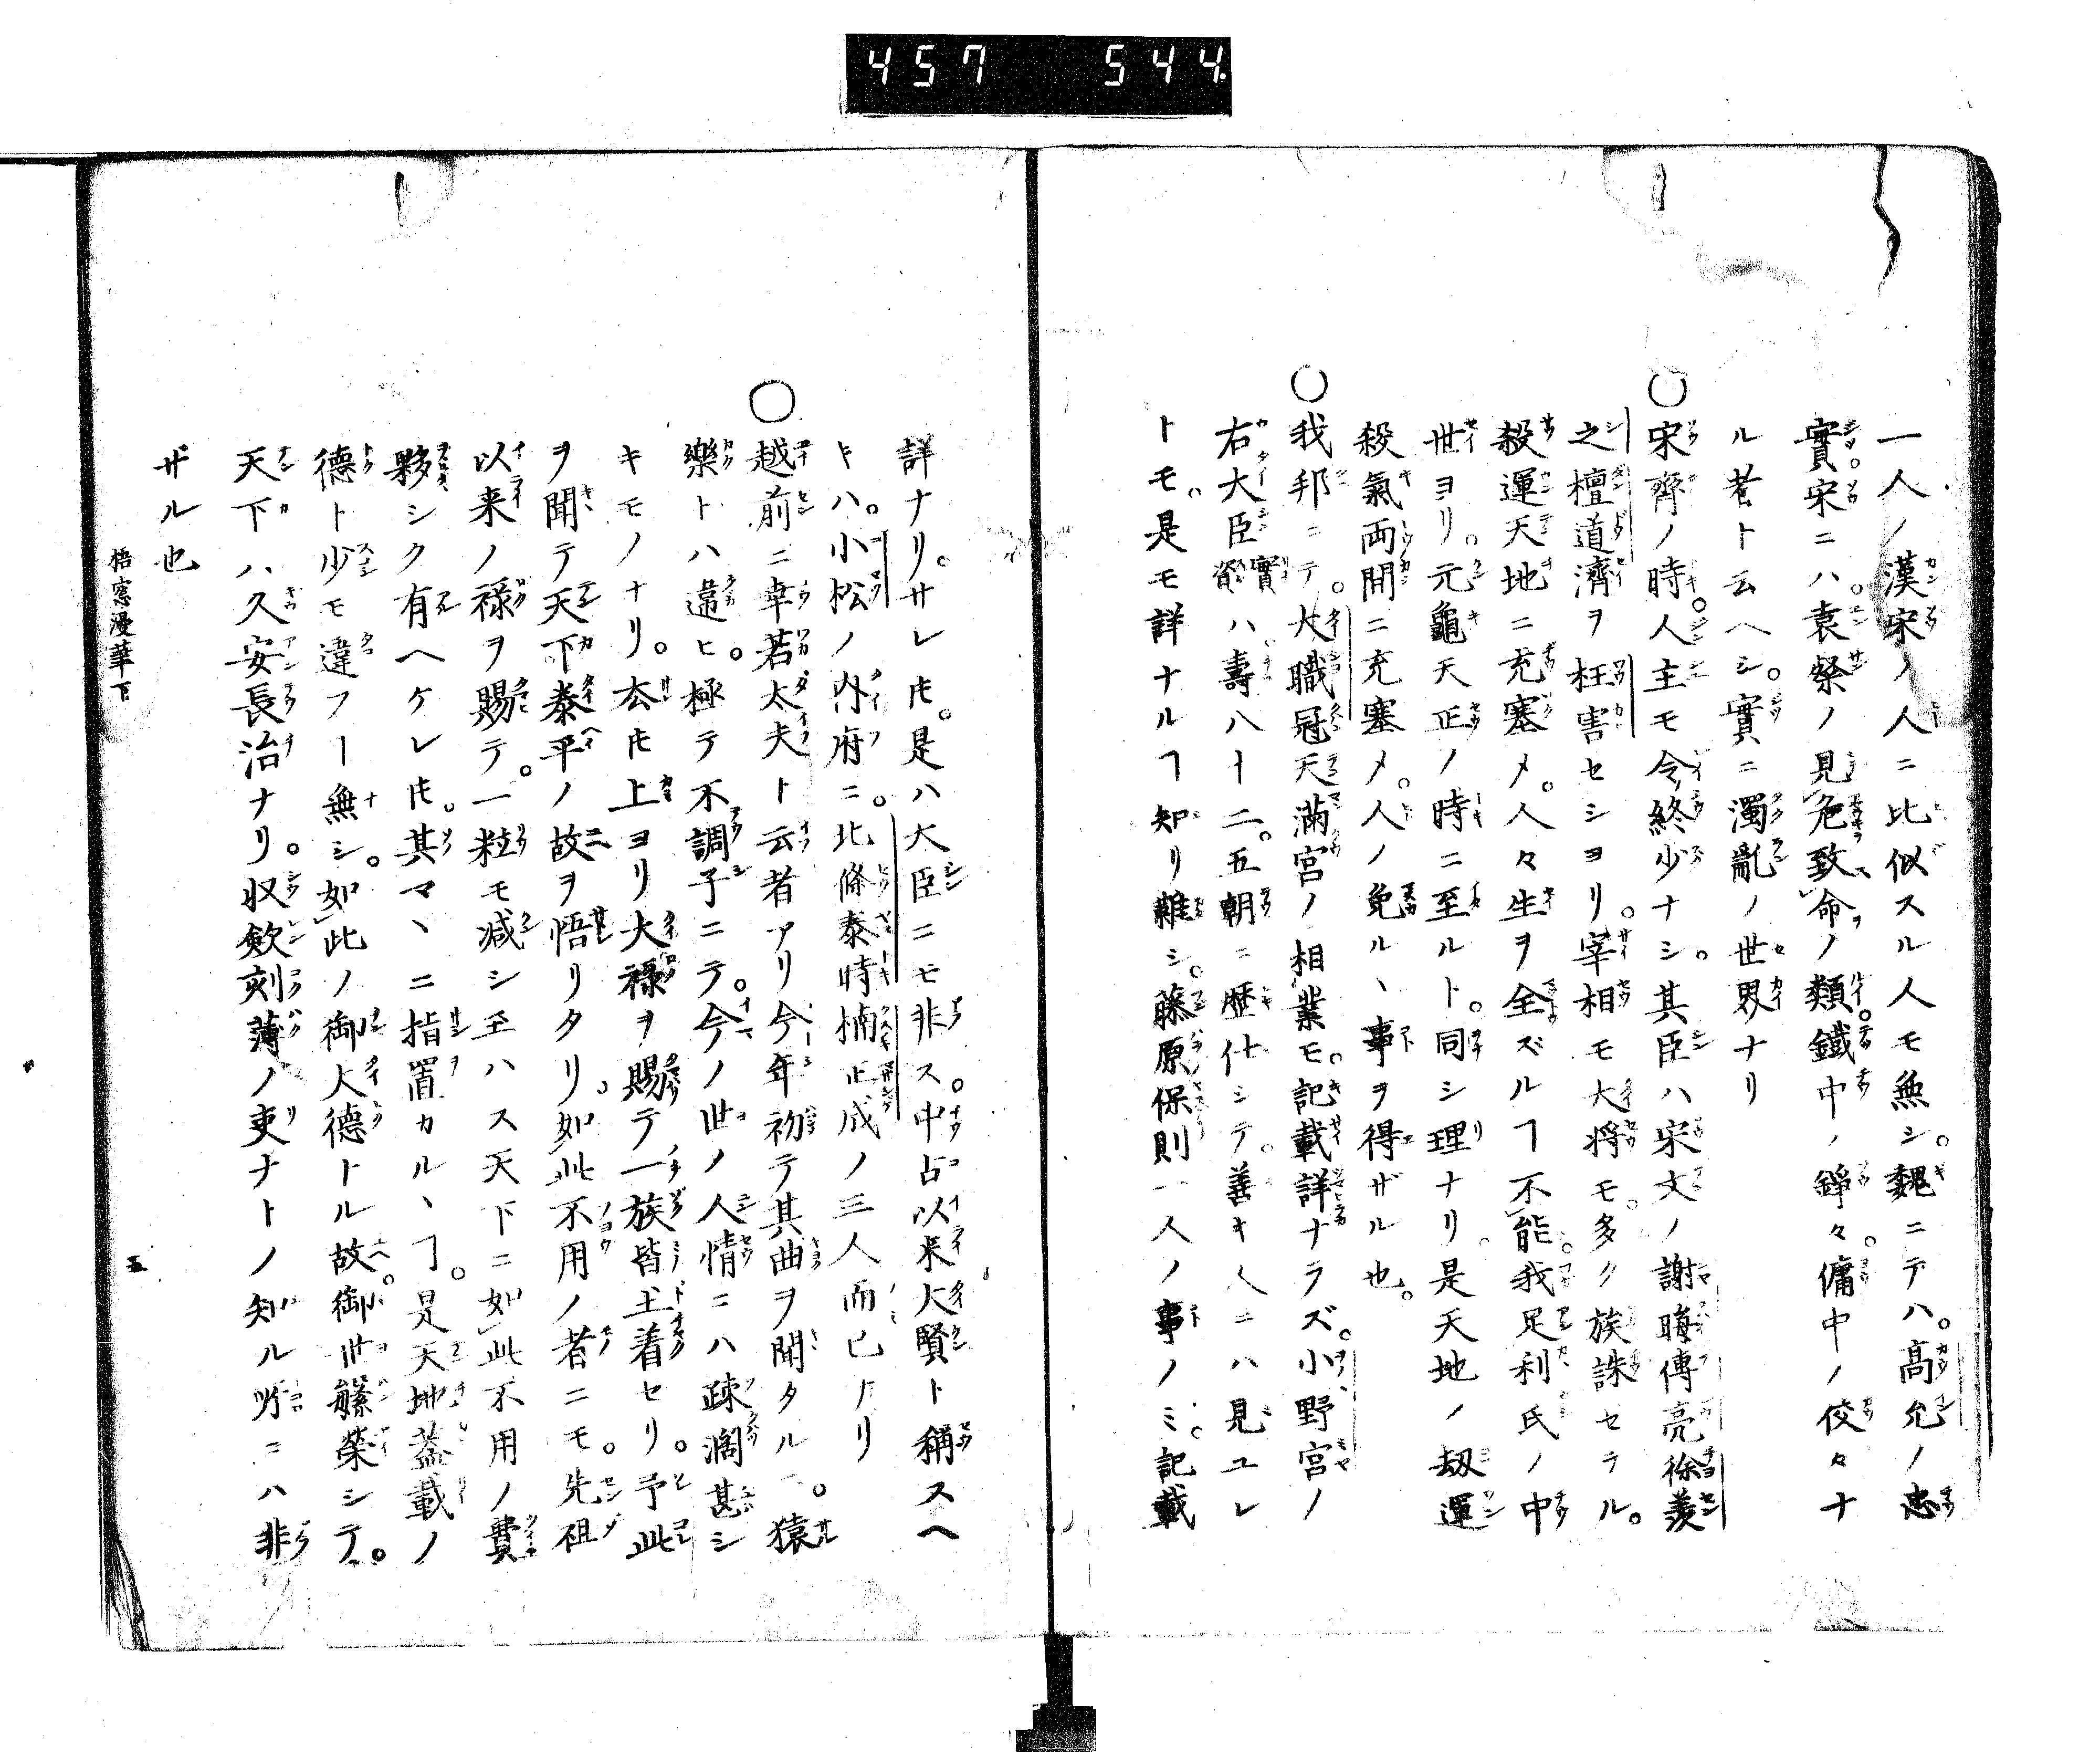 457 544
一人ノ漢宋ノ人ニ比似スル人モ無シ。魏ニテハ。高允ノ忠
實。宋ニハ。袁粲ノ見危致命ノ類。鐵中ノ錚々。傭中ノ佼々ナ
ル者ト云ヘシ。實ニ濁亂ノ世界ナリ
○宋齊ノ時。人主モ令終少ナシ。其臣ハ宋文ノ謝晦傅亮徐羨
之檀道濟ヲ枉害セシヨリ。宰相モ大将モ。多ク族誅セラル。
殺運天地ニ充塞メ。人々生ヲ全ズルヿ不能。我足利氏ノ中
世ヨリ。元龜天正ノ時ニ至ルト。同シ理ナリ。是天地ノ劫運
殺氣両間ニ充塞メ。人ノ免ルヽ事ヲ得ザル也。
○我邦ニテ。大職冠天滿宮ノ相業モ。記載詳ナラズ。小野宮ノ
右大臣實資ハ。壽八十二。五朝ニ歴仕シテ。善キ人ニハ見ユレ
トモ。是モ詳ナルヿ知リ難シ。藤原保則一人ノ事ノミ。記載
詳ナリ。サレ𪜈。是ハ大臣ニモ非ス。中古以来大賢ト稱スヘ
キハ。小松ノ内府ニ。北條泰時楠正成ノ三人而已ナリ
○越前ニ幸若太夫ト云者アリ今年初テ其曲ヲ聞タルニ。猿
樂トハ違ヒ。極テ不調子ニテ。今ノ世ノ人情ニハ疎濶甚シ
キモノナリ。去𪜈上ヨリ大禄ヲ賜テ一族皆土着セリ。予此
ヲ聞テ天下泰平ノ故ヲ悟リタリ。如此不用ノ者ニモ。先祖
以来ノ禄ヲ賜テ。一粒モ减シ玉ハス天下ニ如此不用ノ費
夥シク有ヘケレ𪜈。其マヽニ指置カルヽヿ。是天地蓋載ノ
德ト少モ違フヿ無シ。如此ノ御大德トル故。御世緜榮シテ。
天下ハ久安長治ナリ。収歛刻薄ノ吏ナトノ知ル所ニハ非
ザル也
梧窓漫筆下
五